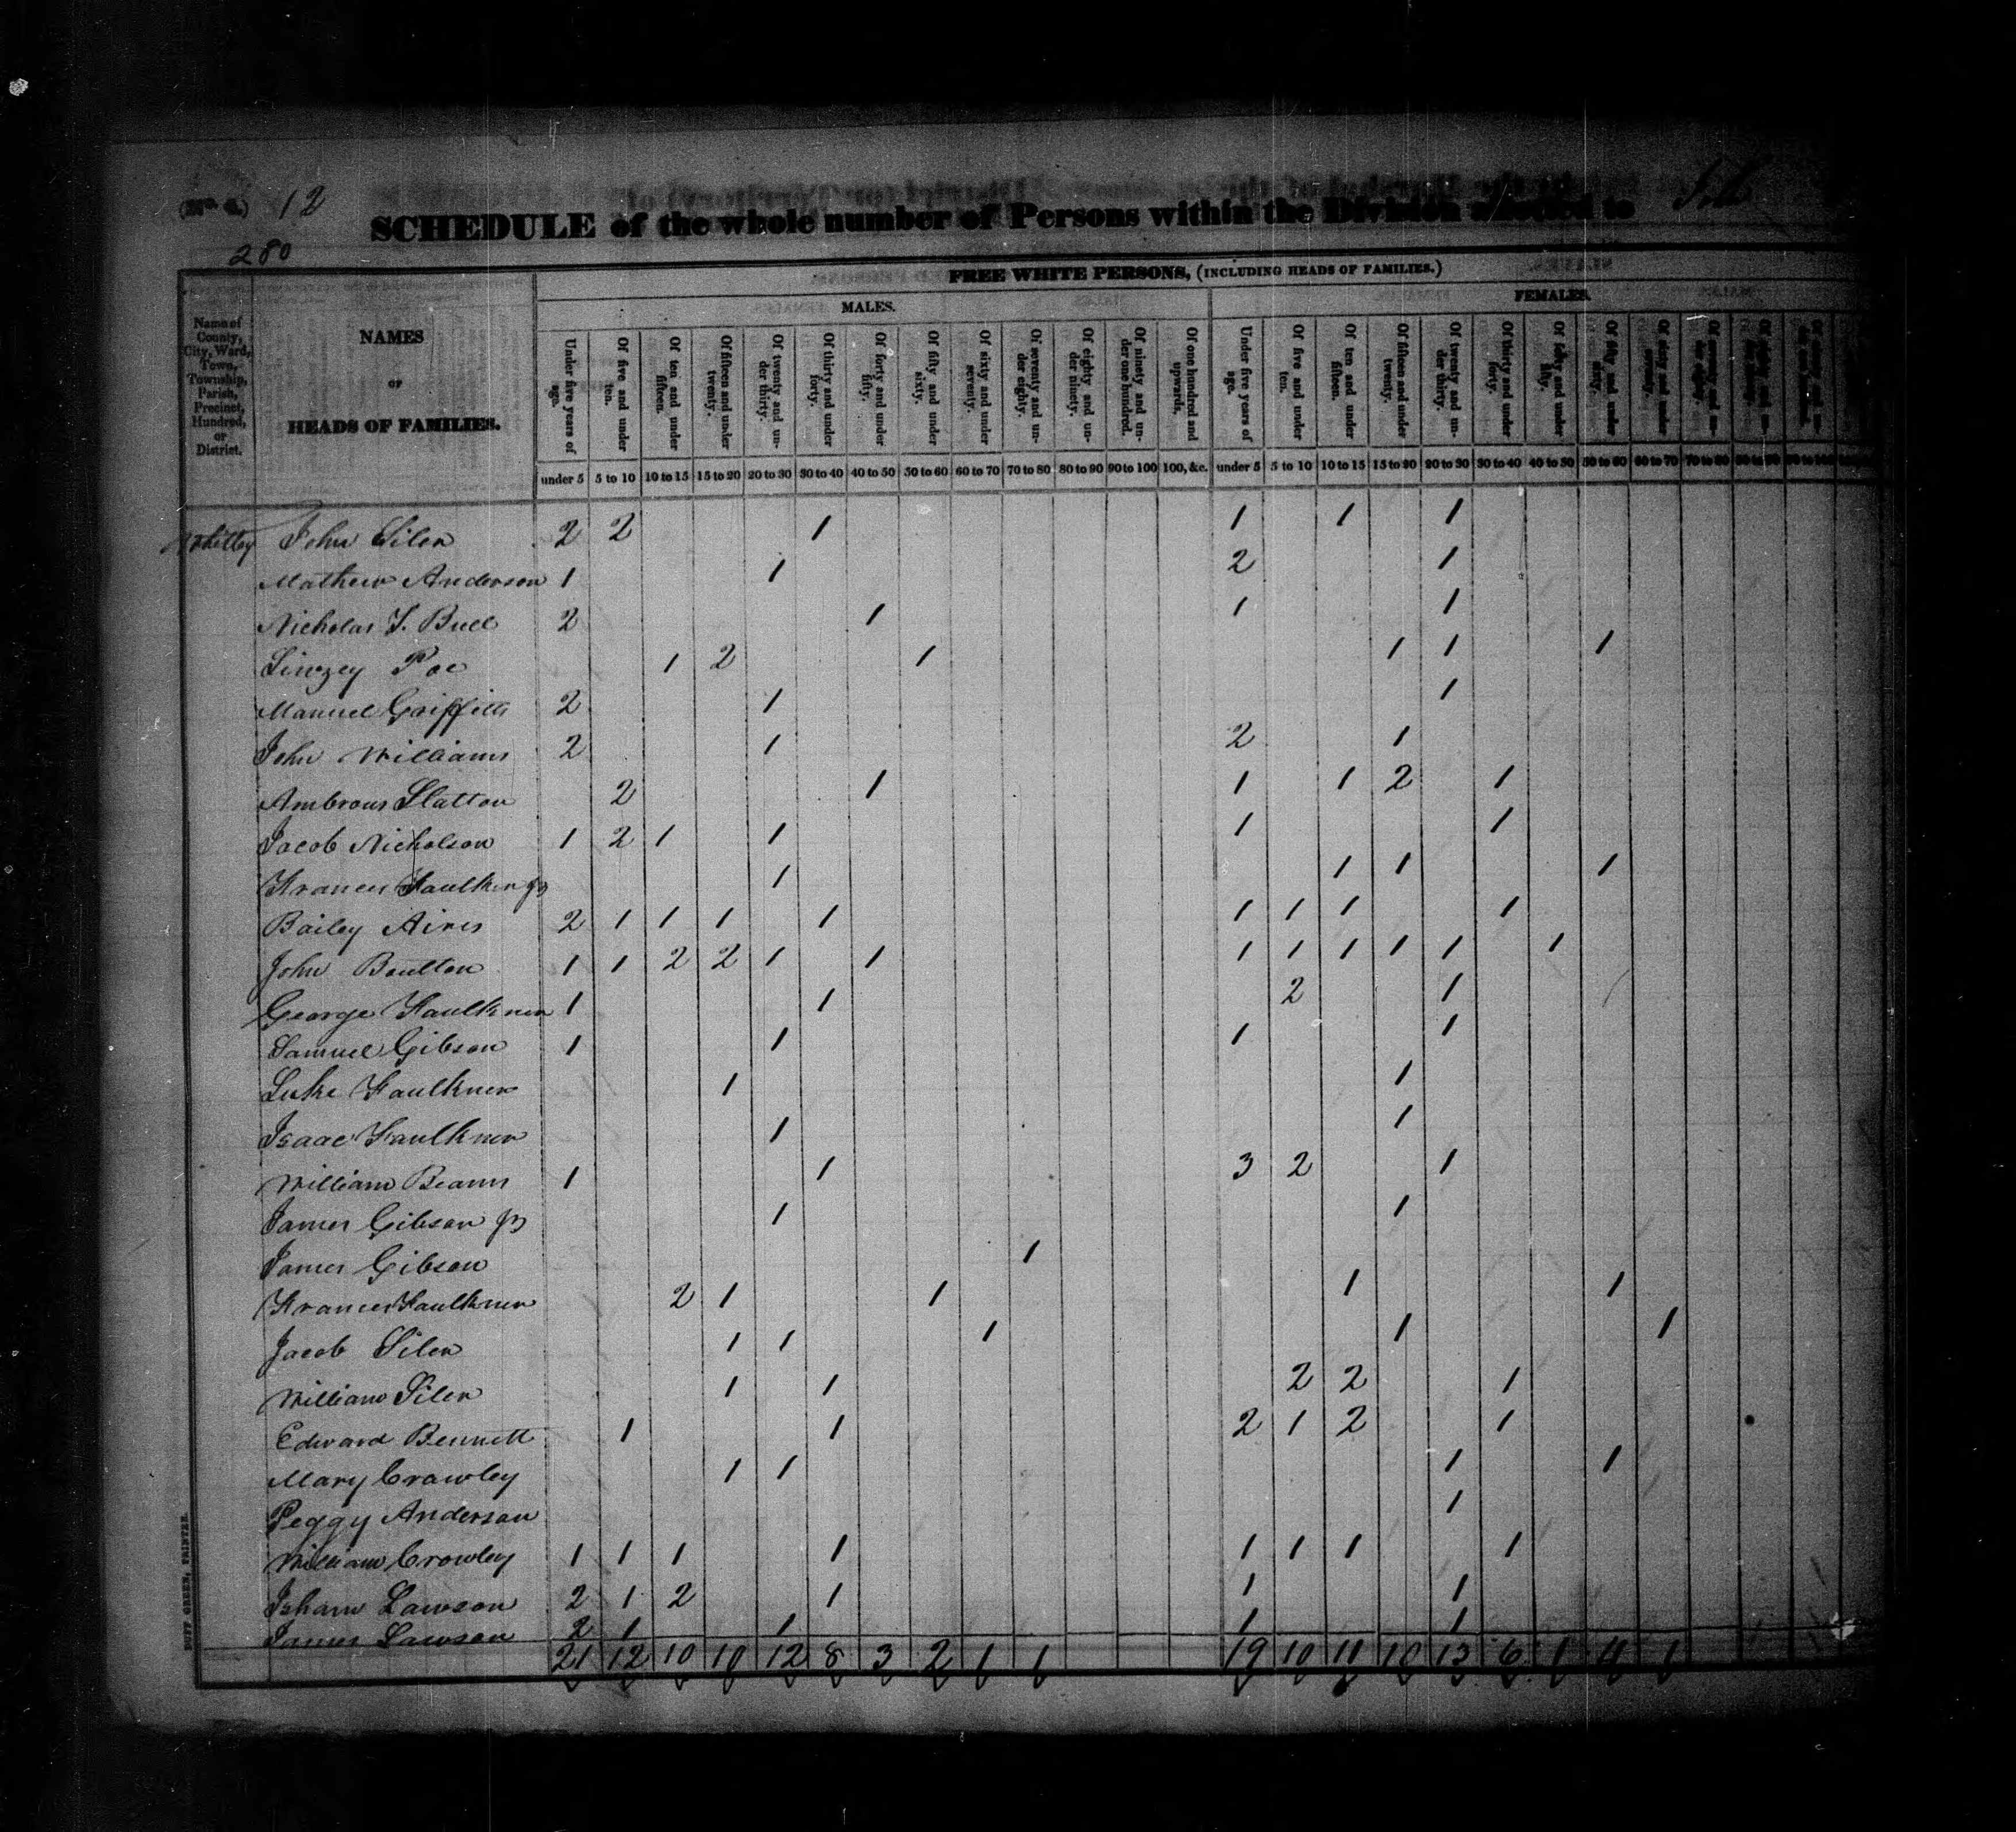 (No. 4.) 12
SCHEDULE of the whole number of Persons within the Division allotted to
280
FREE WHITE PERSONS, (INCLUDING HEADS OF FAMILIES.)
MALES. FEMALES.
Name of County, City, Ward, Town, Township, Parish, Precinct, Hundred, or District.
NAMES
OF
HEADS OF FAMILIES.
Under five years of age. Of five and under ten. Of ten and under fifteen. Of fifteen and under twenty. Of twenty and under thirty. Of thirty and under forty. Of forty and under fifty. Of fifty and under sixty. Of sixty and under seventy. Of seventy and under eighty. Of eighty and under ninety. Of ninety and under one hundred. Of one hundred and upwards. Under five years of age. Of five and under ten. Of ten and under fifteen. Of fifteen and under twenty. Of twenty and under thirty. Of thirty and under forty. Of forty and under fifty. Of fifty and under sixty. Of sixty and under seventy.
under 5 5 to 10 10 to 15 15 to 20 20 to 30 30 to 40 40 to 50 50 to 60 60 to 70 70 to 80 80 to 90 90 to 100 100, &c. under 5 5 to 10 10 to 15 15 to 20 20 to 30 30 to 40 40 to 50 50 to 60 60 to 70 70 to 80
Whitley John Siler 2 2 1 1 1 1
Mathew Anderson 1 1 2 1
Nicholas S. Bull 2 1 1 1
Linzey Poe 1 2 1 1 1 1
Manuel Griffitts 2 1 1
John Williams 2 1 2 1
Ambrous Slatton 2 1 1 1 2 1
Jacob Nicholson 1 2 1 1 1 1
Frances Faulkner Jr 1 1 1 1
Bailey Aires 2 1 1 1 1 1 1 1 1
John Boulton 1 1 2 2 1 1 1 1 1 1 1 1
George Faulkner 1 1 2 1
Samuel Gibson 1 1 1 1
Luke Faulkner 1 1
Isaac Faulkner 1 1
William Beams 1 1 3 2 1
James Gibson Jr 1 1
James Gibson 1
Frances Faulkner 2 1 1 1 1
Jacob Siler 1 1 1 1 1
William Siler 1 1 2 2 1
Edward Bennett 1 1 2 1 2 1
Mary Crawley 1 1 1 1
Peggy Anderson 1
William Crowley 1 1 1 1 1 1 1 1
Isham Lawson 2 1 2 1 1 1
James Lawson 2 1 1 1 1
21 12 10 10 12 8 3 2 1 1 19 10 11 10 13 6 1 4 1
DUFF GREEN, PRINTER.